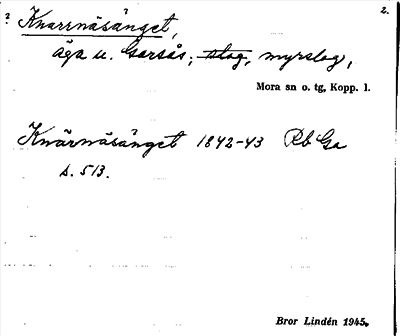 ? Knarrnäsänget, 2.
äga u. Garsås; slog, myrslog,
Mora sn o. tg, Kopp. l.
Knärnäsänget 1842-43 Rb Ga
s. 513.
Bror Lindén 1945.